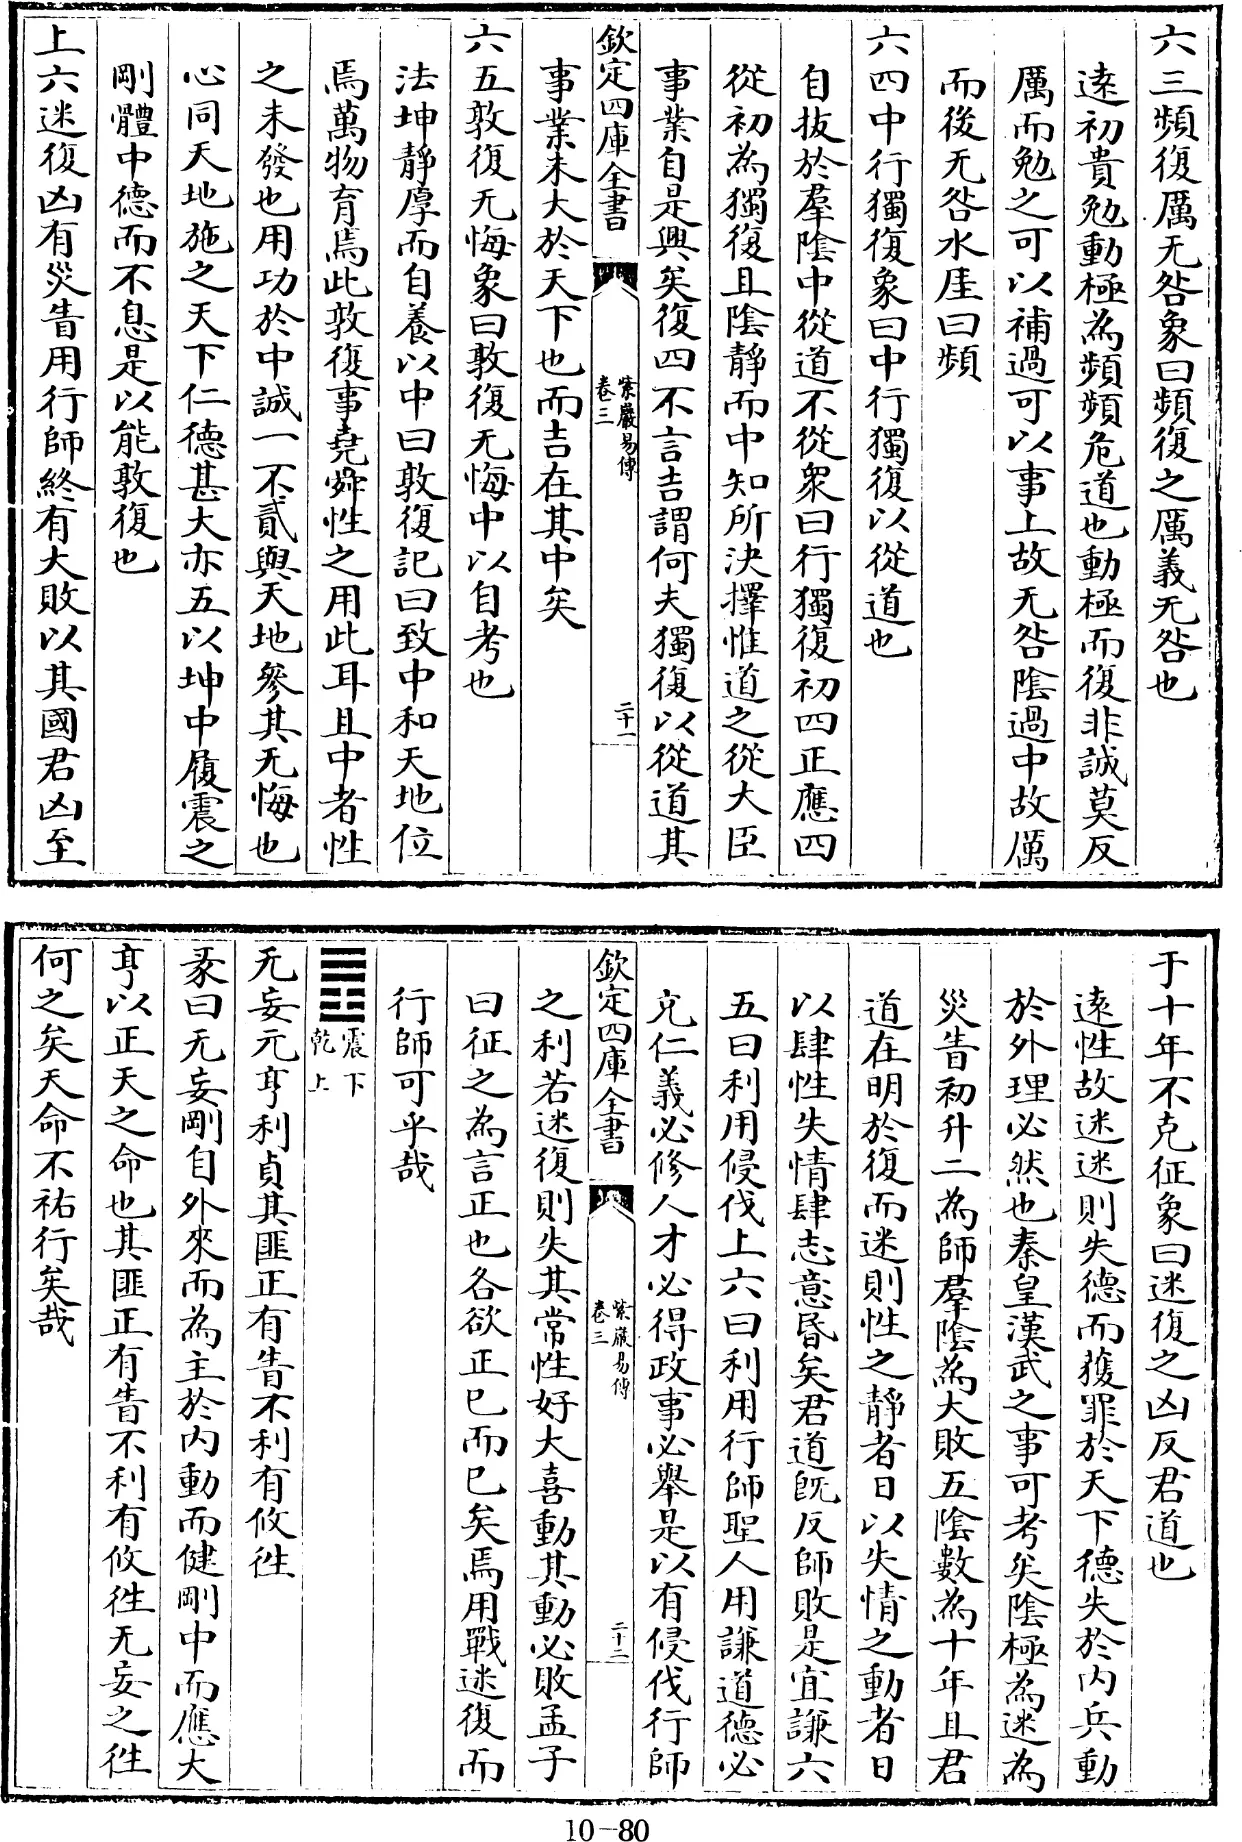 六三頻復厲无咎象曰頻復之厲義无咎也
遠初貴勉動極為頻頻危道也動極而復非誠莫反
厲而勉之可以補過可以事上故无咎陰過中故厲
而後无咎水厓曰頻
六四中行獨復象曰中行獨復以從道也
自拔於羣陰中從道不從衆曰行獨復初四正應四
從初為獨復且陰靜而中知所決擇惟道之從大臣
事業自是興矣復四不言吉謂何夫獨復以從道其
欽定四庫全書
紫巖易傳
卷三
二十一
事業未大於天下也而吉在其中矣
六五敦復无悔象曰敦復无悔中以自考也
法坤靜厚而自養以中曰敦復記曰致中和天地位
焉萬物育焉此敦復事堯舜性之用此耳且中者性
之未發也用功於中誠一不貳與天地參其无悔也
心同天地施之天下仁德甚大亦五以坤中履震之
剛體中德而不息是以能敦復也
上六迷復凶有災眚用行師終有大敗以其國君凶至
于十年不克征象曰迷復之凶反君道也
遠性故迷迷則失德而獲罪於天下德失於内兵動
於外理必然也秦皇漢武之事可考矣陰極為迷為
災眚初升二為師羣陰為大敗五陰數為十年且君
道在明於復而迷則性之靜者日以失情之動者日
以肆性失情肆志意昏矣君道既反師敗是宜謙六
五曰利用侵伐上六曰利用行師聖人用謙道德必
克仁義必修人才必得政事必舉是以有侵伐行師
欽定四庫全書
紫巖易傳
卷三
二十二
之利若迷復則失其常性好大喜動其動必敗孟子
曰征之為言正也各欲正已而已矣焉用戰迷復而
行師可乎哉
䷘
震下
乾上
无妄元亨利貞其匪正有眚不利有攸往
彖曰无妄剛自外來而為主於内動而健剛中而應大
亨以正天之命也其匪正有眚不利有攸往无妄之往
何之矣天命不祐行矣哉
10-80